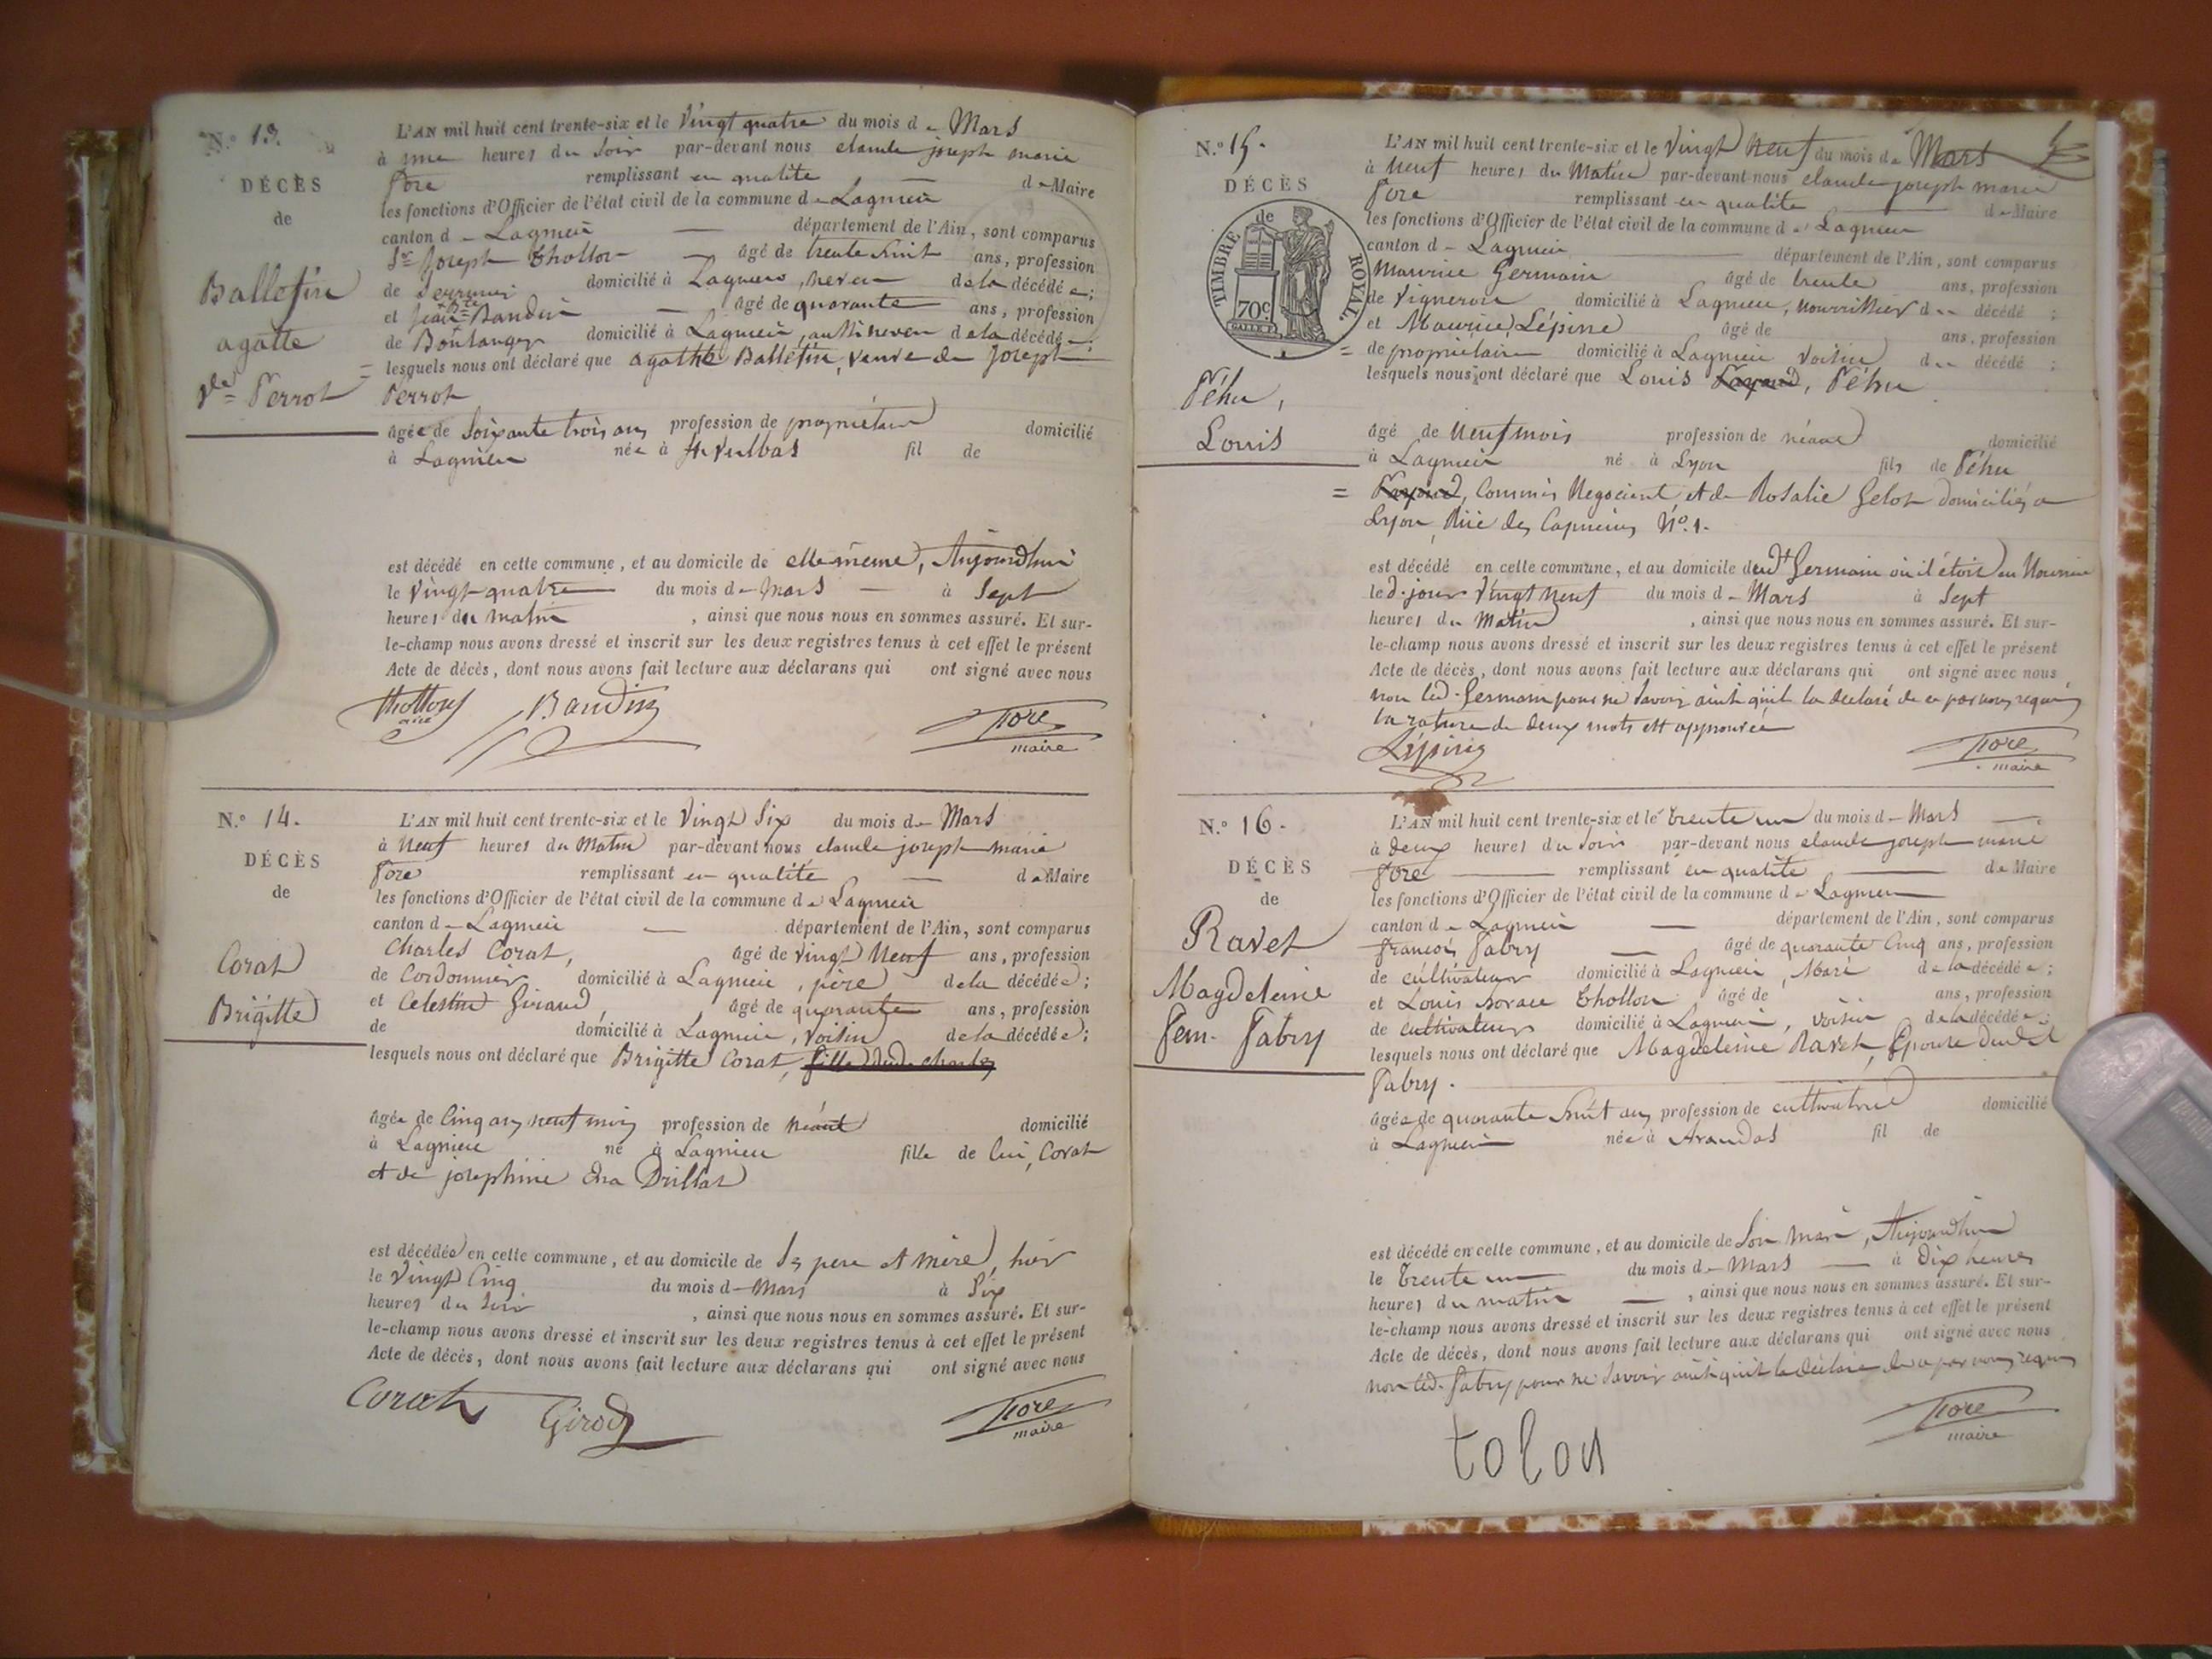 N.° 13.
DÉCÈS
de
Balletin
agatte
Ve Perrot
L'AN mil huit cent trente-six et le Vingt quatre du mois de Mars
à une heures du Soir par-devant nous claude joseph marie
fore remplissant en qualité de Maire
les fonctions d'Officier de l'état civil de la commune de Lagnieu
canton de Lagnieu département de l'Ain, sont comparus
Sr Joseph Thollon âgé de trente huit ans, profession
de domicilié à Lagnieu, neveu de la décédée;
et jean Bte Baudin âgé de quarante ans, profession
de Boulanger domicilié à Lagnieu, aussi neveu de la décédée;
lesquels nous ont déclaré que agathe Balletin, veuve de Joseph
Perrot
âgée de Soixante trois ans profession de propriétaire domicilié
à Lagnieu née à St Vulbas fil de
est décédé en cette commune, et au domicile de elle même, Aujourdhui
le Vingt quatre du mois de Mars à Sept
heures du matin, ainsi que nous nous en sommes assuré. Et sur-
le-champ nous avons dressé et inscrit sur les deux registres tenus à cet effet le présent
Acte de décès, dont nous avons fait lecture aux déclarans qui ont signé avec nous
Baudin
fore
maire
N.° 14.
DÉCÈS
de
Corat
Brigitte
L'AN mil huit cent trente-six et le Vingt Six du mois de Mars
à Neuf heures du Matin par-devant nous claude joseph marie
fore remplissant en qualité de Maire
les fonctions d'Officier de l'état civil de la commune de Lagnieu
canton de Lagnieu département de l'Ain, sont comparus
Charles Corat, âgé de vingt Neuf ans, profession
de Cordonnier domicilié à Lagnieu, père de la décédée;
et Celestin Giraud, âgé de quarante ans, profession
de domicilié à Lagnieu, voisin de la décédée;
lesquels nous ont déclaré que Brigitte Corat, fille dudt charles
âgée de Cinq ans, neuf mois profession de néant domicilié
à Lagnieu né à Lagnieu fille de lui, Corat
et de josephine Drillat
est décédée en cette commune, et au domicile de Ses pere et mère, hier
le Vingt Cinq du mois de Mars à Six
heures du Soir, ainsi que nous nous en sommes assuré. Et sur-
le-champ nous avons dressé et inscrit sur les deux registres tenus à cet effet le présent
Acte de décès, dont nous avons fait lecture aux déclarans qui ont signé avec nous
Corat Girod
fore
maire
N.° 15.
DÉCÈS
de
TIMBRE ROYAL
70c
Péhu,
Louis
L'AN mil huit cent trente-six et le Vingt Neuf du mois de Mars
à Neuf heures du Matin par-devant nous claude joseph marie
fore remplissant en qualité de Maire
les fonctions d'Officier de l'état civil de la commune de Lagnieu
canton de Lagnieu département de l'Ain, sont comparus
Maurice Germain âgé de trente ans, profession
de Vigneron domicilié à Lagnieu, nourrissier du décédé;
et Maurice Lépine âgé de ans, profession
de propriétaire domicilié à Lagnieu voisin du décédé;
lesquels nous ont déclaré que Louis Péhu
âgé de Neuf mois profession de néant domicilié
à Lagnieu né à Lyon fils de Péhu
Commis Negociant et de Rosalie Gelot domiciliés a
Lyon, Rue des Capucins N°. 1.
est décédé en cette commune, et au domicile dudt Germain où il étoit en Nourrice
led. jour Vingt Neuf du mois de Mars à Sept
heures du Matin, ainsi que nous nous en sommes assuré. Et sur-
le-champ nous avons dressé et inscrit sur les deux registres tenus à cet effet le présent
Acte de décès, dont nous avons fait lecture aux déclarans qui ont signé avec nous
non led. Germain pour ne Savoir ainsi qu'il la declaré de ce par nous requis
la rature de deux mots est approuvée
Lépine
fore
maire
N.° 16.
DÉCÈS
de
Ravet
Magdeleine
Fem. Fabry
L'AN mil huit cent trente-six et le trente un du mois de Mars
à deux heures du Soir par-devant nous claude joseph marie
fore remplissant en qualité de Maire
les fonctions d'Officier de l'état civil de la commune de Lagnieu
canton de Lagnieu département de l'Ain, sont comparus
françois Fabry âgé de quarante Cinq ans, profession
de cultivateur domicilié à Lagnieu, Mari de la décédée;
et Louis Thollon âgé de ans, profession
de cultivateur domicilié à Lagnieu, voisin de la décédée;
lesquels nous ont déclaré que Magdeleine Ravet, Epouse dudt
Fabry.
âgée de quarante huit ans profession de cultivatrice domicilié
à Lagnieu née à Arandas fil de
est décédé en cette commune, et au domicile de Son Mari, Aujourdhui
le trente un du mois de Mars à Dix heures
heures du matin, ainsi que nous nous en sommes assuré. Et sur-
le-champ nous avons dressé et inscrit sur les deux registres tenus à cet effet le présent
Acte de décès, dont nous avons fait lecture aux déclarans qui ont signé avec nous
non led. Fabry pour ne Savoir ainsi qu'il la déclaré de ce par nous requis
tolon
fore
maire